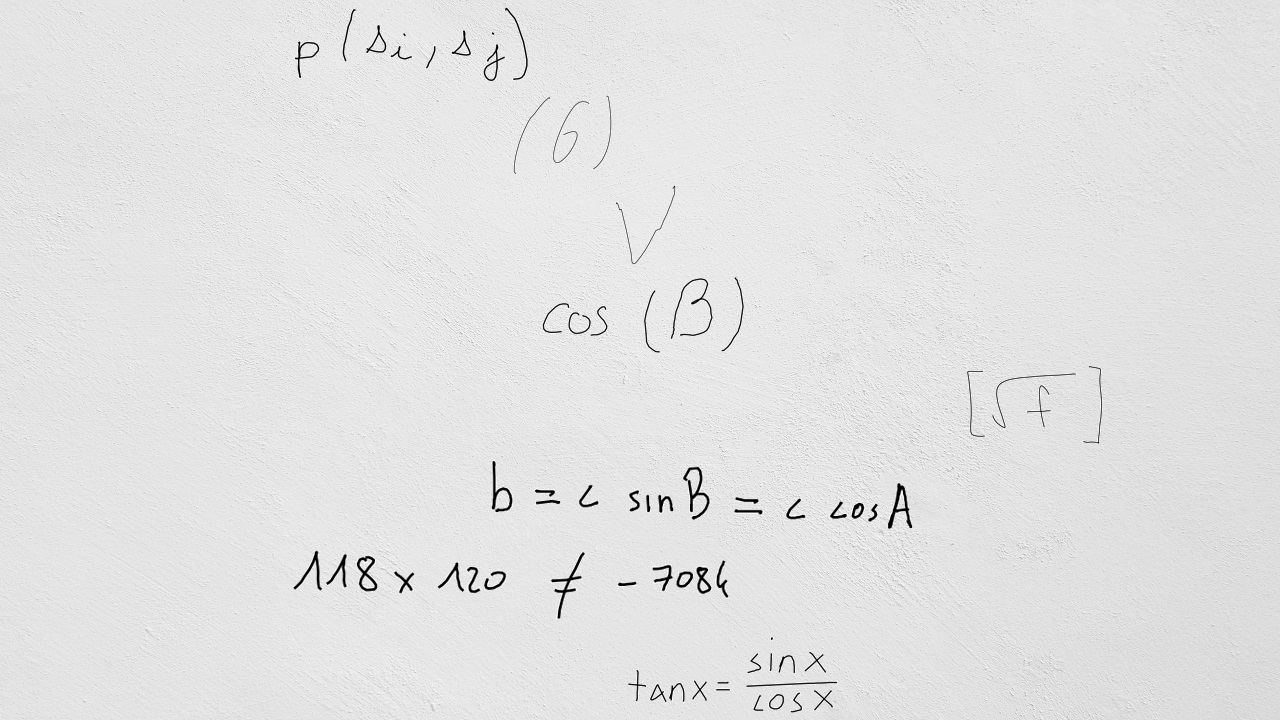 p(si, sj)
(6)
V
cos (B)
[√f]
b = c sin B = c cos A
118 x 120 ≠ - 7084
tan x = sin x / cos x